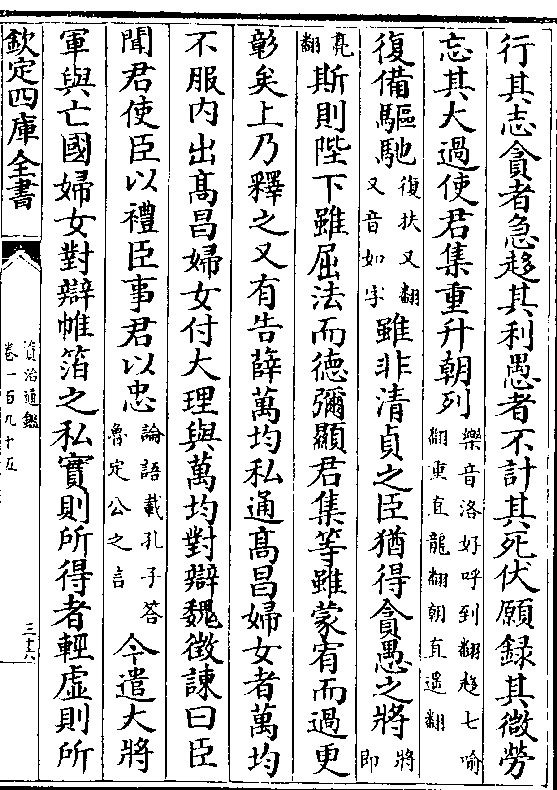 行其志貪者急趍其利愚者不計其死伏願録其微勞
忘其大過使君集重升朝列樂音洛好呼到翻趍七喻翻重直龍翻朝直遥翻
復備驅馳復扶又翻又音如字雖非清貞之臣猶得貪愚之將將即
亮翻斯則陛下雖屈法而德彌顯君集等雖蒙宥而過更
彰矣上乃釋之又有告薛萬均私通髙昌婦女者萬均
不服内出髙昌婦女付大理與萬均對辯魏徵諫曰臣
聞君使臣以禮臣事君以忠論語載孔子答魯定公之言今遣大將
軍與亡國婦女對辯帷箔之私實則所得者輕虛則所
欽定四庫全書
資治通鑑
卷一百九十五
三十六